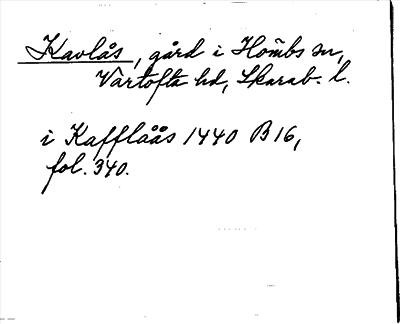 Kavlås, gård i Hömbs sn,
Vartofta hd, Skarab. l.
i Kafflåås 1440 B16,
fol. 340.